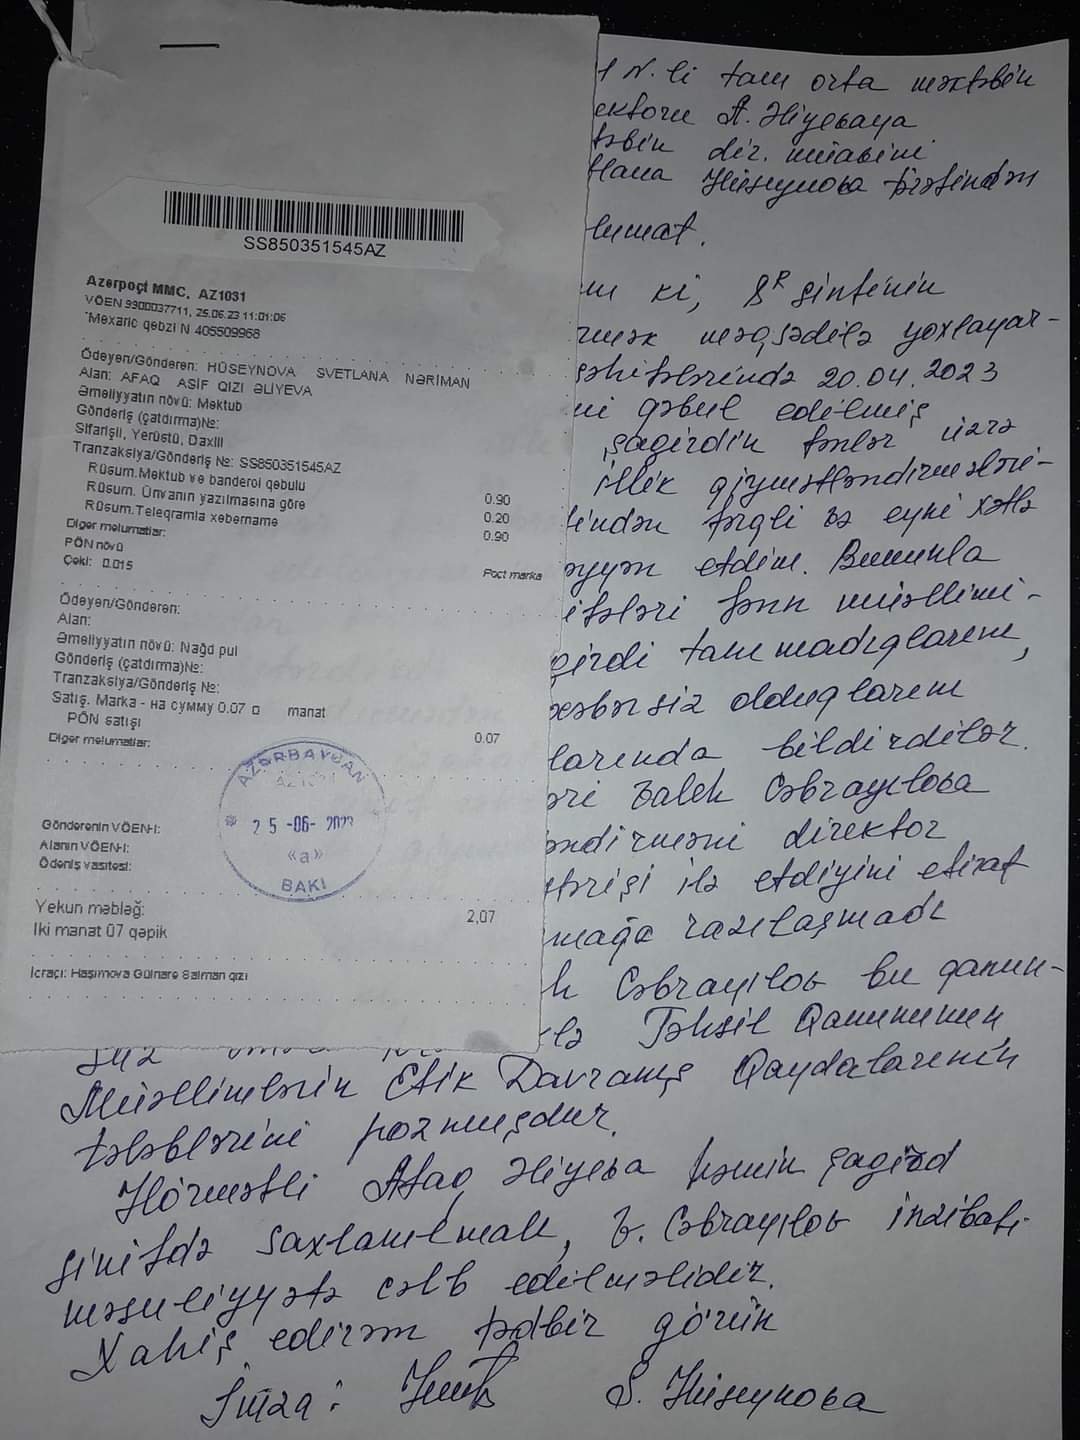 SS850351545AZ
Azərpoçt MMC, AZ1031
VÖEN 9900037711, 25.06.23 11:01:06
Məxaric qəbzi N 405509968
Ödəyən/Göndərən: HÜSEYNOVA SVETLANA NƏRİMAN
Alan: AFAQ ASİF QIZI ƏLİYEVA
Əməliyyatın növü: Məktub
Göndəriş (çatdırma)№:
Sifarişli, Yerüstü, Daxili
Tranzaksiya/Göndəriş №: SS850351545AZ
Rüsum.Məktub və banderol qəbulu 0.90
Rüsum. Ünvanın yazılmasına görə 0.20
Rüsum.Teleqramla xəbərnamə 0.90
Digər məlumatlar:
PÖN növü Poçt marka
Çəki: 0.015
Ödəyən/Göndərən:
Alan:
Əməliyyatın növü: Nağd pul
Göndəriş (çatdırma)№:
Tranzaksiya/Göndəriş №:
Satış. Marka - на сумму 0.07 manat
PÖN satışı 0.07
Digər məlumatlar:
AZƏRBAYCAN
25-06-2023
«a»
BAKI
Göndərənin VÖEN-i:
Alanın VÖEN-i:
Ödəniş vasitəsi:
Yekun məbləğ: 2,07
İki manat 07 qəpik
İcraçı: Haşımova Gülnarə Salman qızı
1 N-li tam orta məktəbin
ektoru A. Əliyevaya
təbin dir. müavini
tlana Hüseynova tərəfindən
lumat.
ki, 8ᴿ sinfinin
rmək məqsədilə yoxlayar-
səhifələrində 20.04.2023
ni qəbul edilmiş
şagirdin fənlər üzrə
illik qiymətləndirmələri-
lindən fərqli və eyni xətlə
əyyən etdim. Bununla
ifələri fənn müəllimi-
girdi tanımadıqlarını,
xəbərsiz olduqlarını
larında bildirdilər.
əri Saleh Cəbrayılova
əndirməni direktor
stərişi ilə etdiyini etiraf
mağa razılaşmadı
h Cəbrayılov bu qanun-
suz ilə Təhsil Qanununun
Müəllimlərin Etik Davranış Qaydalarının
tələblərini pozmuşdur.
Hörmətli Afaq Əliyeva həmin şagird
sinifdə saxlanılmalı, S. Cəbrayılov inzibati
məsuliyyətə cəlb edilməlidir.
Xahiş edirəm tədbir görün
İmza: S. Hüseynova